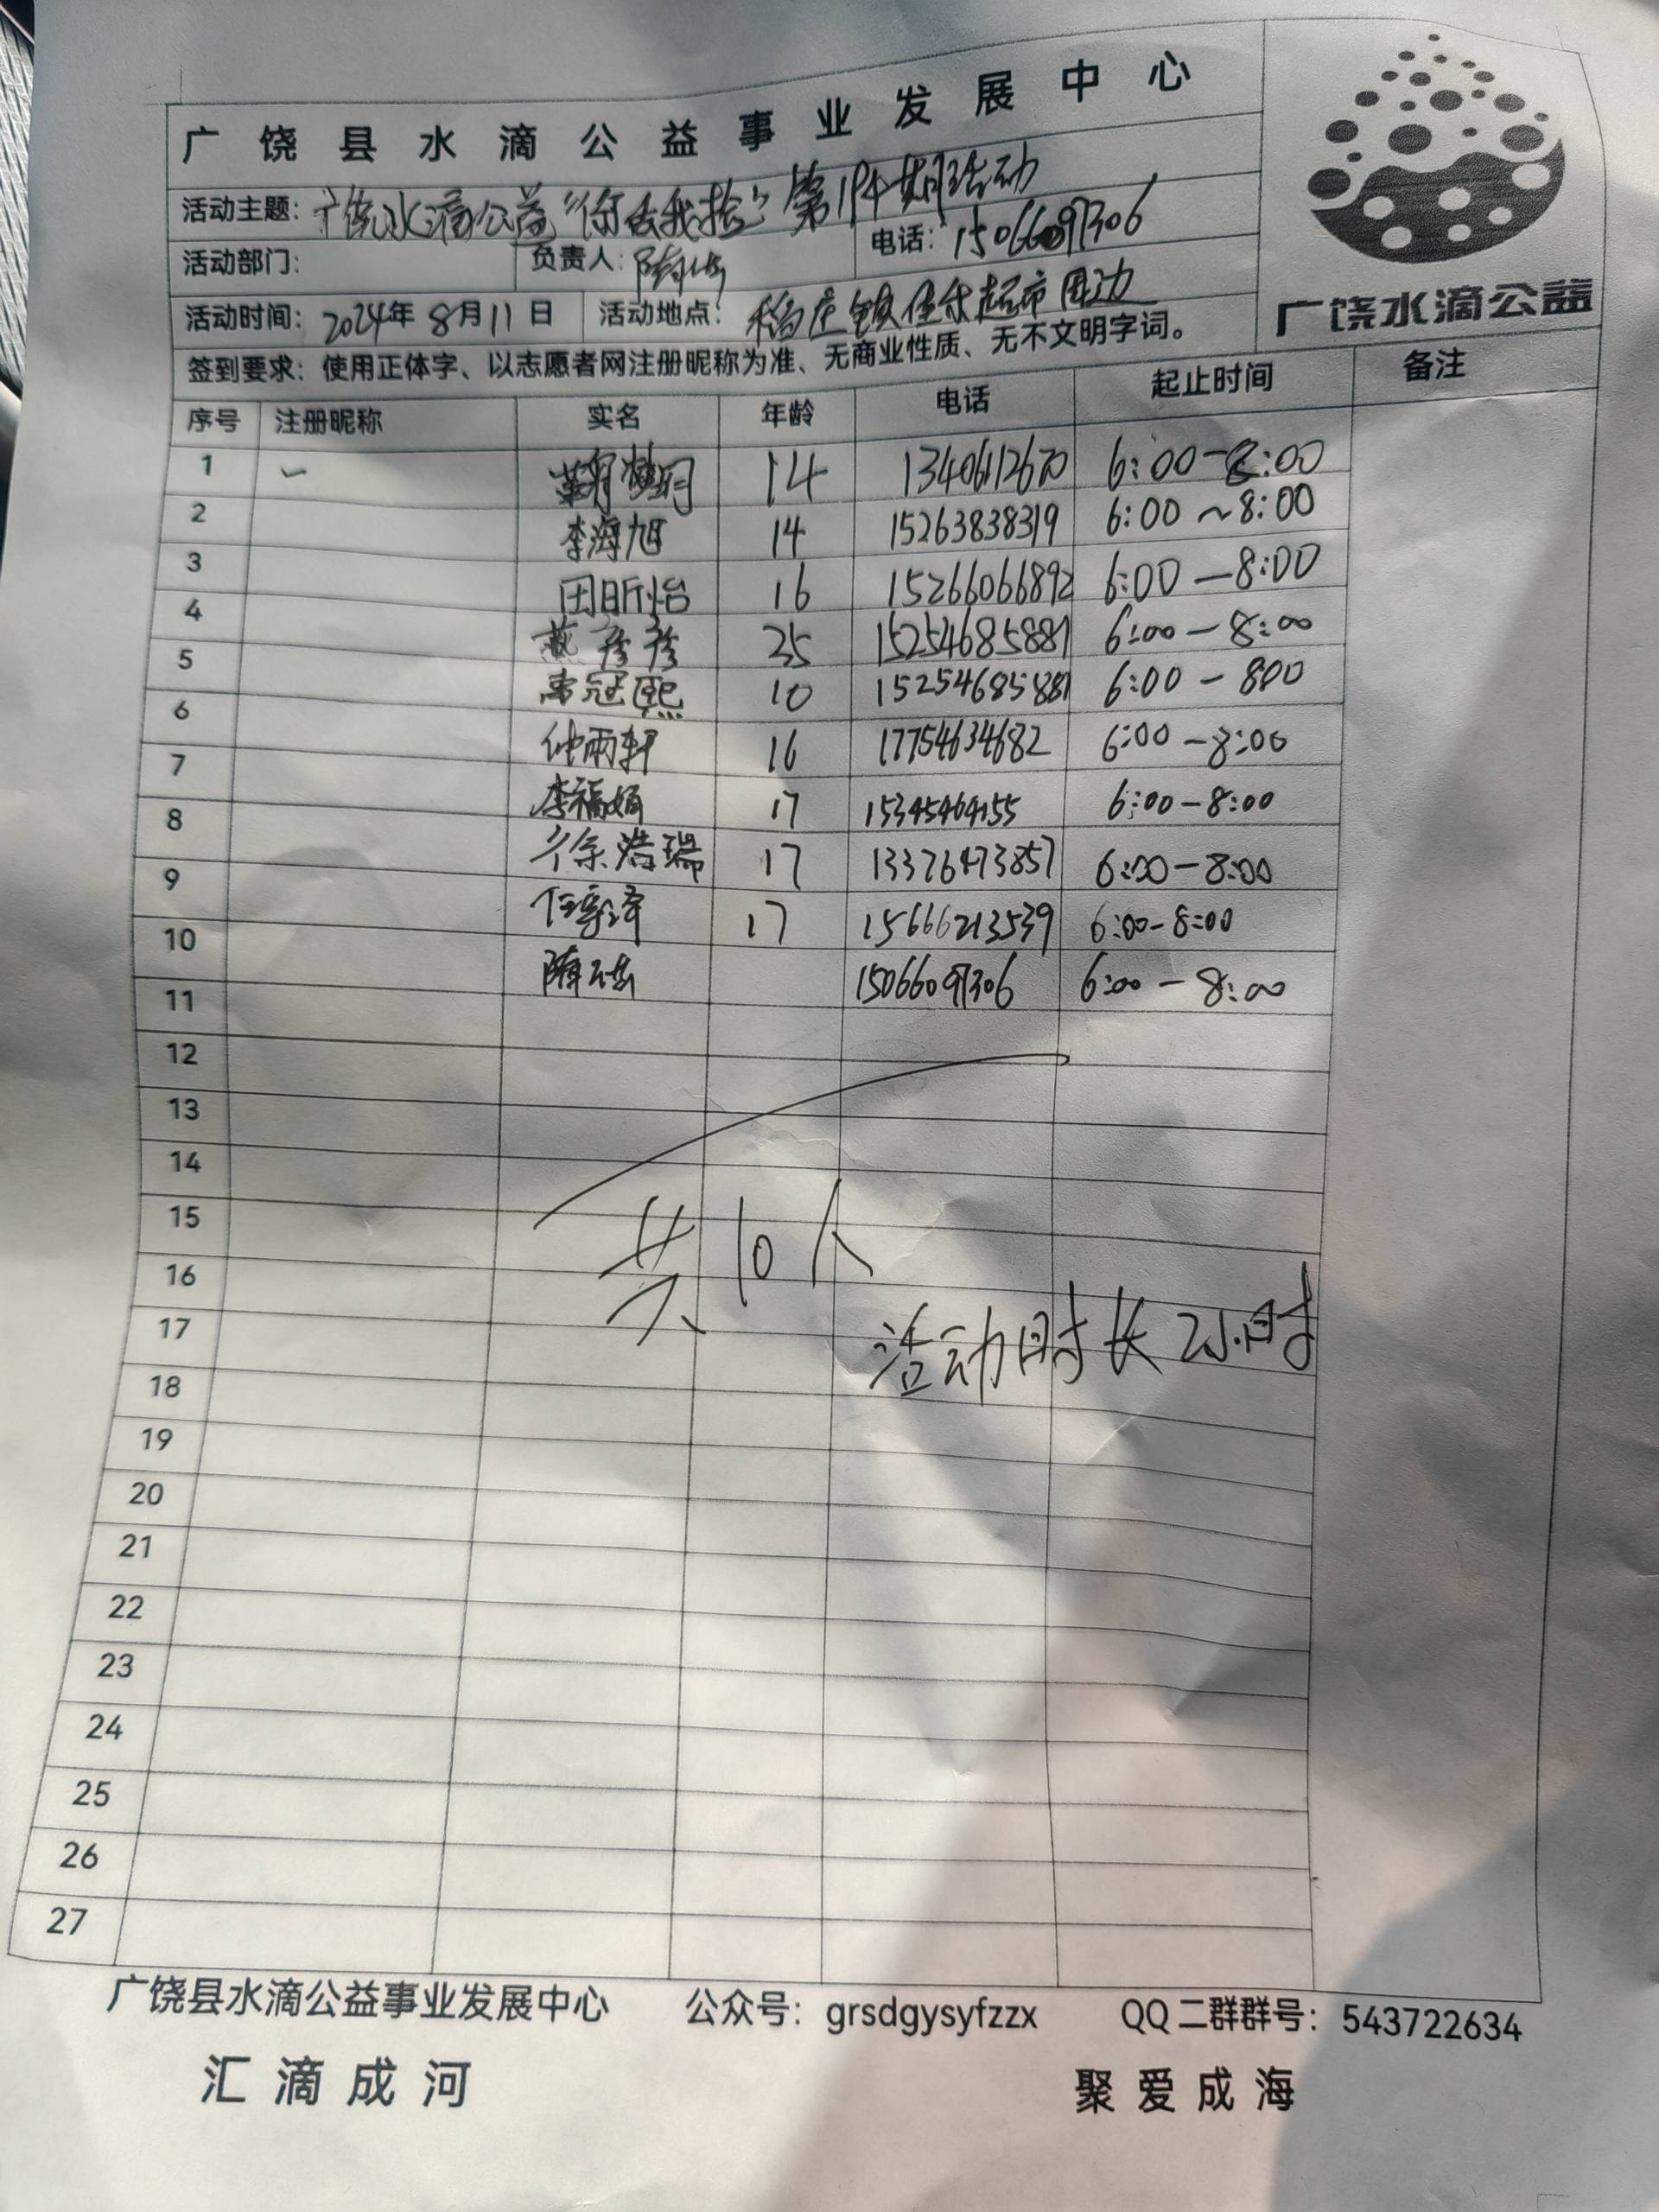 广饶县水滴公益事业发展中心
广饶水滴公益
活动主题：广饶水滴公益“你丢我捡”第194期活动
活动部门： 负责人： 电话：15066097306
活动时间：2024年8月11日 活动地点：稻庄镇佳乐超市周边
签到要求：使用正体字、以志愿者网注册昵称为准、无商业性质、无不文明字词。
序号 注册昵称 实名 年龄 电话 起止时间 备注
1 14 6:00-8:00
2 李海旭 14 15263838319 6:00~8:00
3 田昕怡 16 15266066892 6:00-8:00
4 燕彦彦 35 15254685887 6:00-8:00
5 冠熙 10 15254685887 6:00-800
6 仲雨轩 16 17754634682 6:00-8:00
7 李福娟 17 6:00-8:00
8 徐浩瑞 17 13376473857 6:00-8:00
9 17 15666213539 6:00-8:00
10 15066097306 6:00-8:00
11
12
13
14
15
共10人
16
17
活动时长2小时
18
19
20
21
22
23
24
25
26
27
广饶县水滴公益事业发展中心 公众号：grsdgysyfzzx QQ二群群号：543722634
汇滴成河 聚爱成海